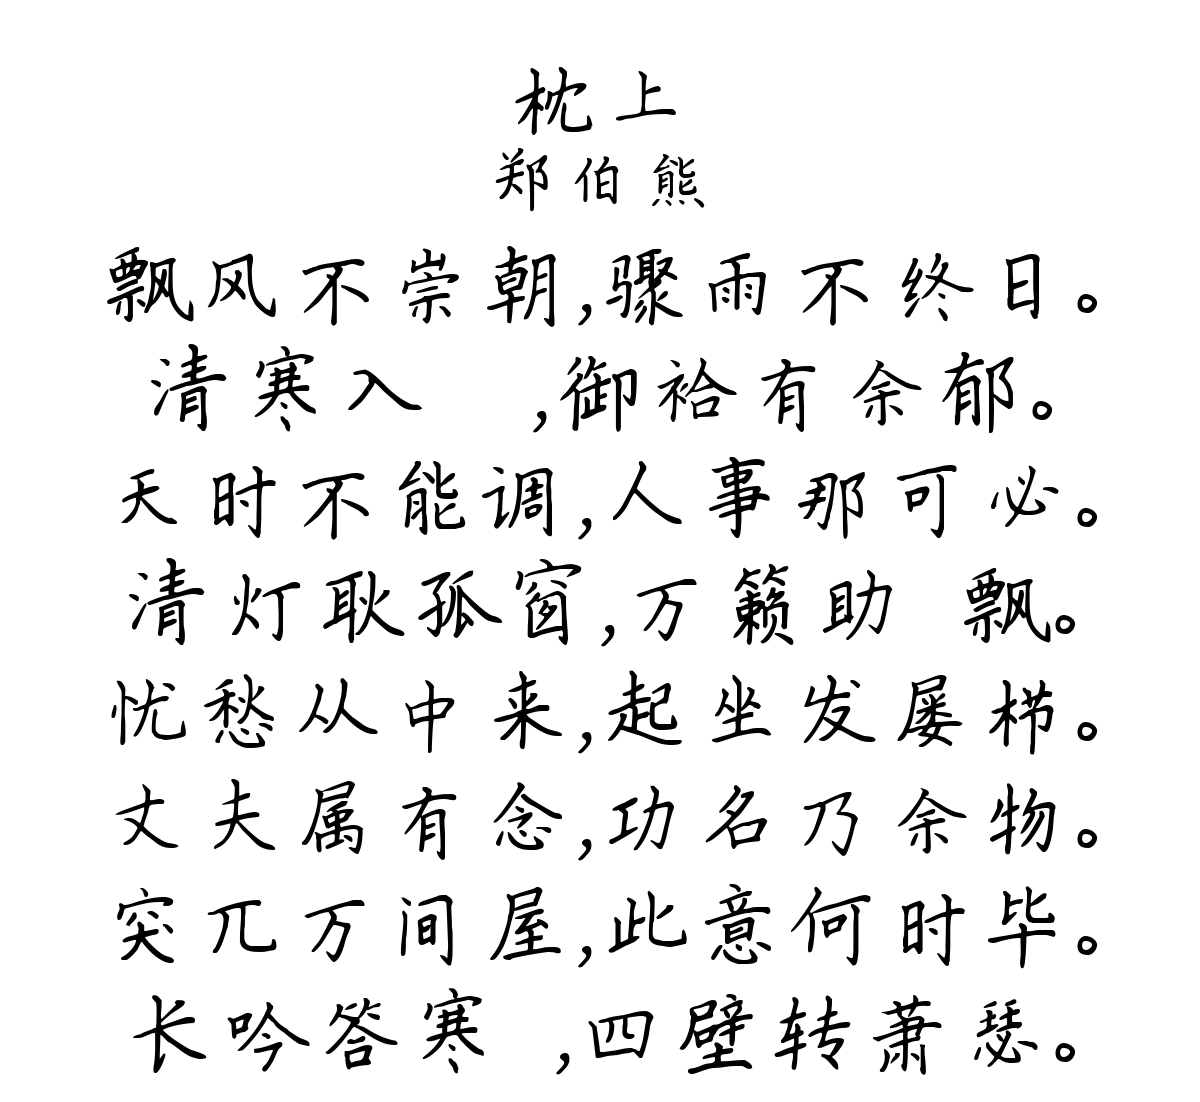 枕上
郑伯熊
飘风不崇朝,骤雨不终日。
清寒入 ,御袷有余郁。
天时不能调,人事那可必。
清灯耿孤窗,万籁助 飘。
忧愁从中来,起坐发屡栉。
丈夫属有念,功名乃余物。
突兀万间屋,此意何时毕。
长吟答寒 ,四壁转萧瑟。